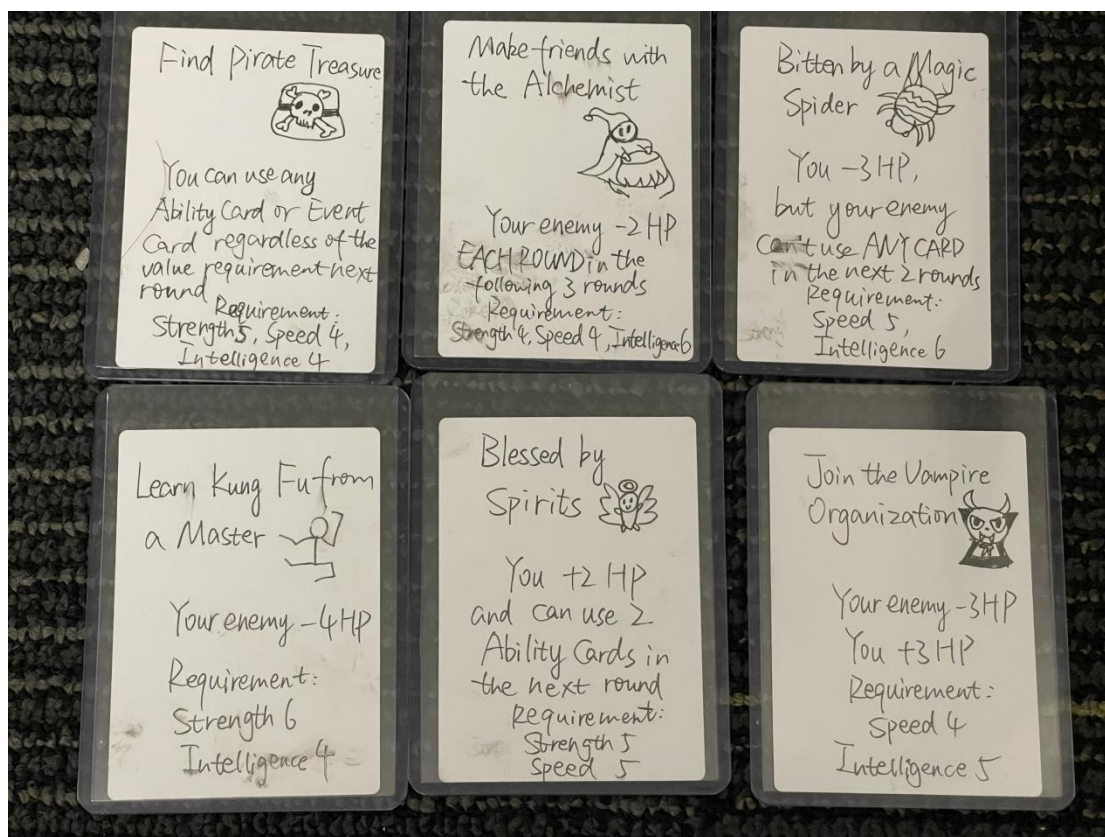 Find Pirate Treasure
You can use any
Ability Card or Event
Card regardless of the
value requirement next
round
Requirement:
Strength 5, Speed 4,
Intelligence 4
Make friends with
the Alchemist
Your enemy -2 HP
EACH ROUND in the
following 3 rounds
Requirement:
Strength 4, Speed 4, Intelligence 6
Bitten by a Magic
Spider
You -3HP,
but your enemy
can't use ANY CARD
in the next 2 rounds
Requirement:
Speed 5,
Intelligence 6
Learn Kung Fu from
a Master
Your enemy -4HP
Requirement:
Strength 6
Intelligence 4
Blessed by
Spirits
You +2 HP
and can use 2
Ability Cards in
the next round
Requirement:
Strength 5
Speed 5
Join the Vampire
Organization
Your enemy -3HP
You +3HP
Requirement:
Speed 4
Intelligence 5